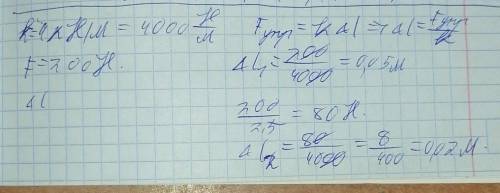 k=4кН/м = 4000 Н/м
F=200Н.
Δl
Fупр = kΔl ⇒ Δl = Fупр/k
Δl₁ = 200/4000 = 0,05м
200/2,5 = 80Н.
Δl₂ = 80/4000 = 8/400 = 0,02м.